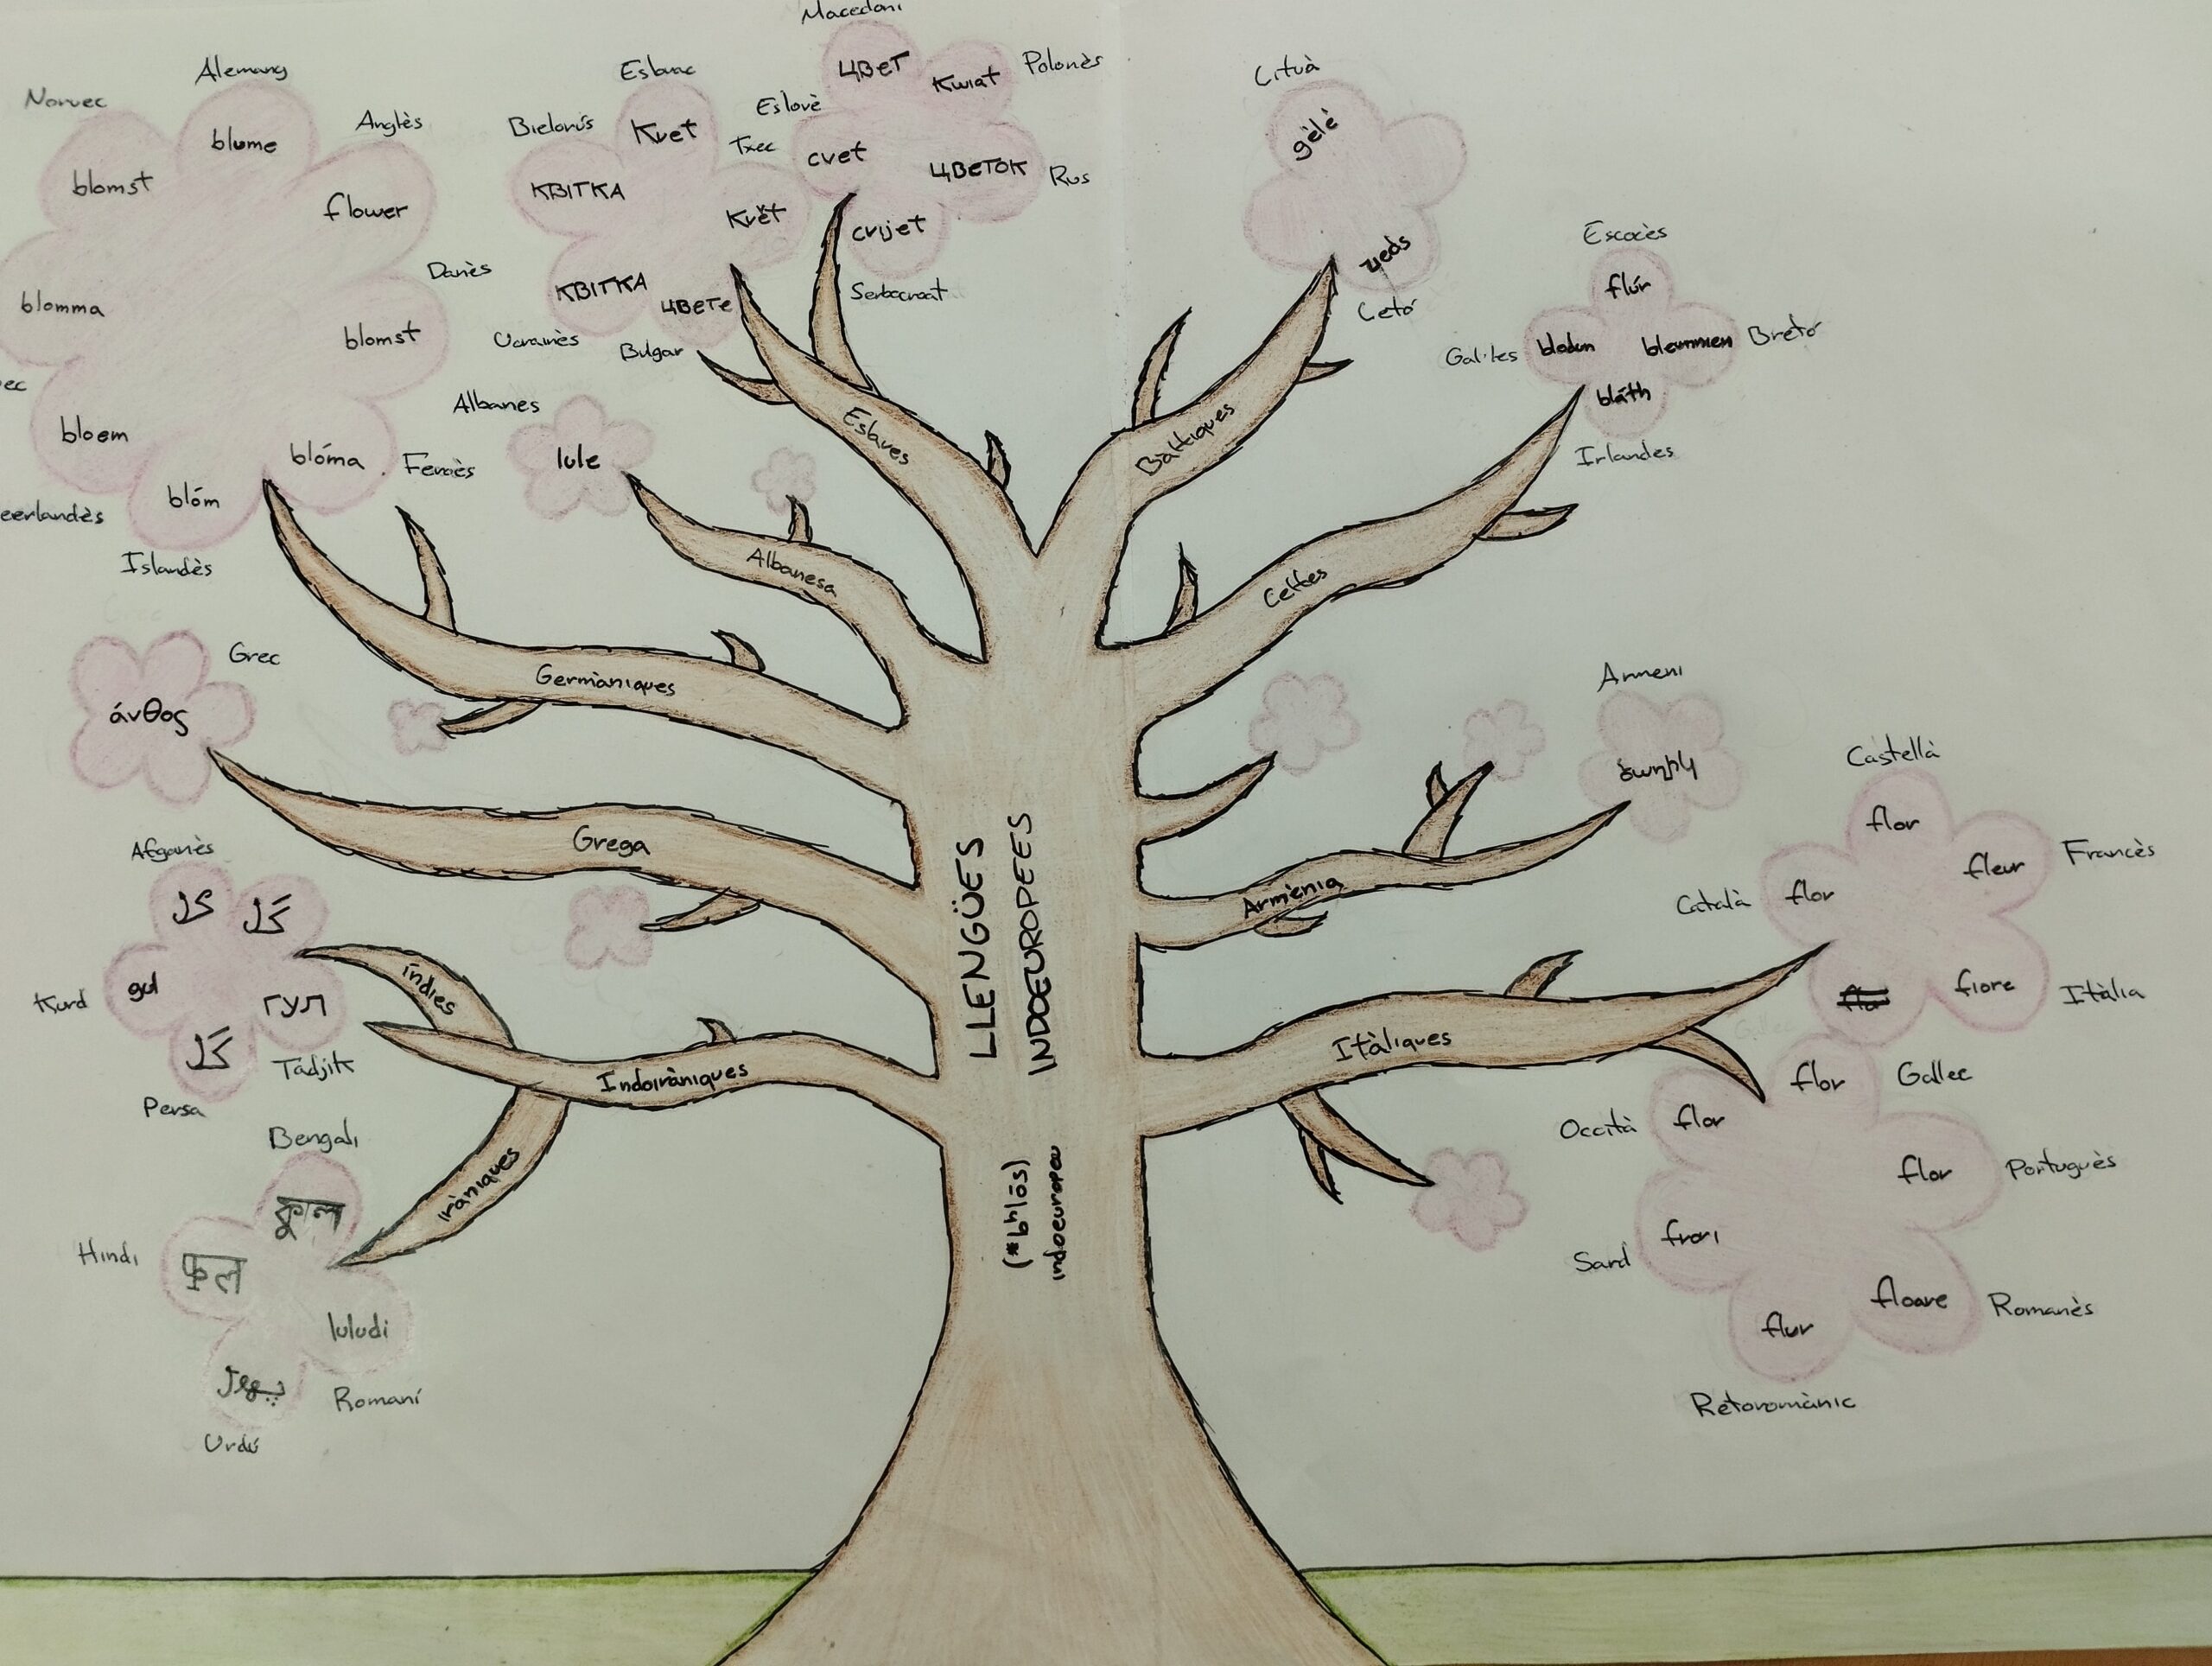 Macedoni
цвет
Kwiat
Polonès
Eslovè
cvet
цветок
Rus
crijet
Serbocroat
Norvec
Alemany
Anglès
blomst
blume
flower
blomma
Danès
blomst
ec
bloem
blóma
Feroès
eerlandès
blóm
Islandès
Eslovac
Bielorús
Kvet
Txec
КВІТКА
Květ
КВІТКА
цвете
Ucraïnès
Bulgar
Albanes
lule
Lituà
gėlė
zieds
Letó
Escocès
flúr
Gal·les
blodun
bleunnien
Bretó
bláth
Irlandes
Eslaves
Bàltiques
Albanesa
Celtes
Germàniques
Grec
άνθος
Grega
Armeni
ծաղիկ
Armènia
Afganès
ګل
گل
Kurd
gul
гул
گل
Tadjik
Persa
Índies
Indoiràniques
Iràniques
Bengali
Hindi
luludi
Romaní
Urdú
LLENGÜES
INDOEUROPEES
(*bʰlōs)
indoeuropeu
Itàliques
Castellà
flor
fleur
Francès
Català
flor
fiore
Itàlia
flor
Gallec
Occità
flor
flor
Portuguès
Sard
frori
floare
Romanès
flur
Retoromànic